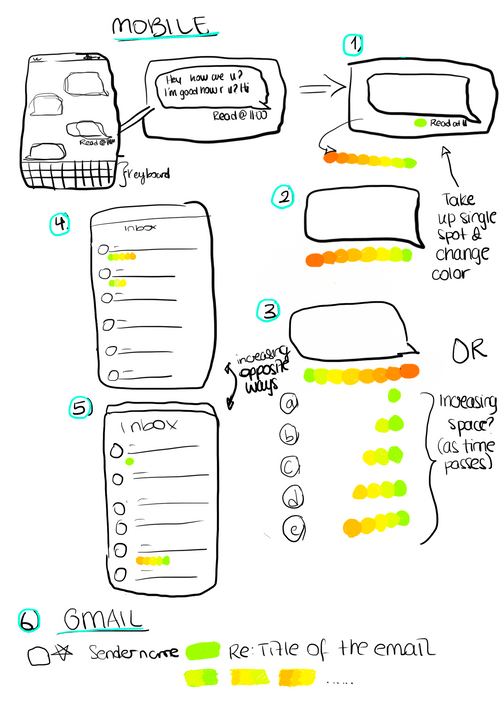 MOBILE
Hey how are u?
I'm good how r u? Hi
Read @ 11:00
Read@
}Keyboard
1)
Read at 11
Take
up single
spot &
change
color
2
4.
Inbox
3
OR
increasing
opposite
ways
5)
Inbox
a
b
c
d
e
Increasing
space?
(as time
passes)
6 GMAIL
Sendername Re: Title of the email
.....